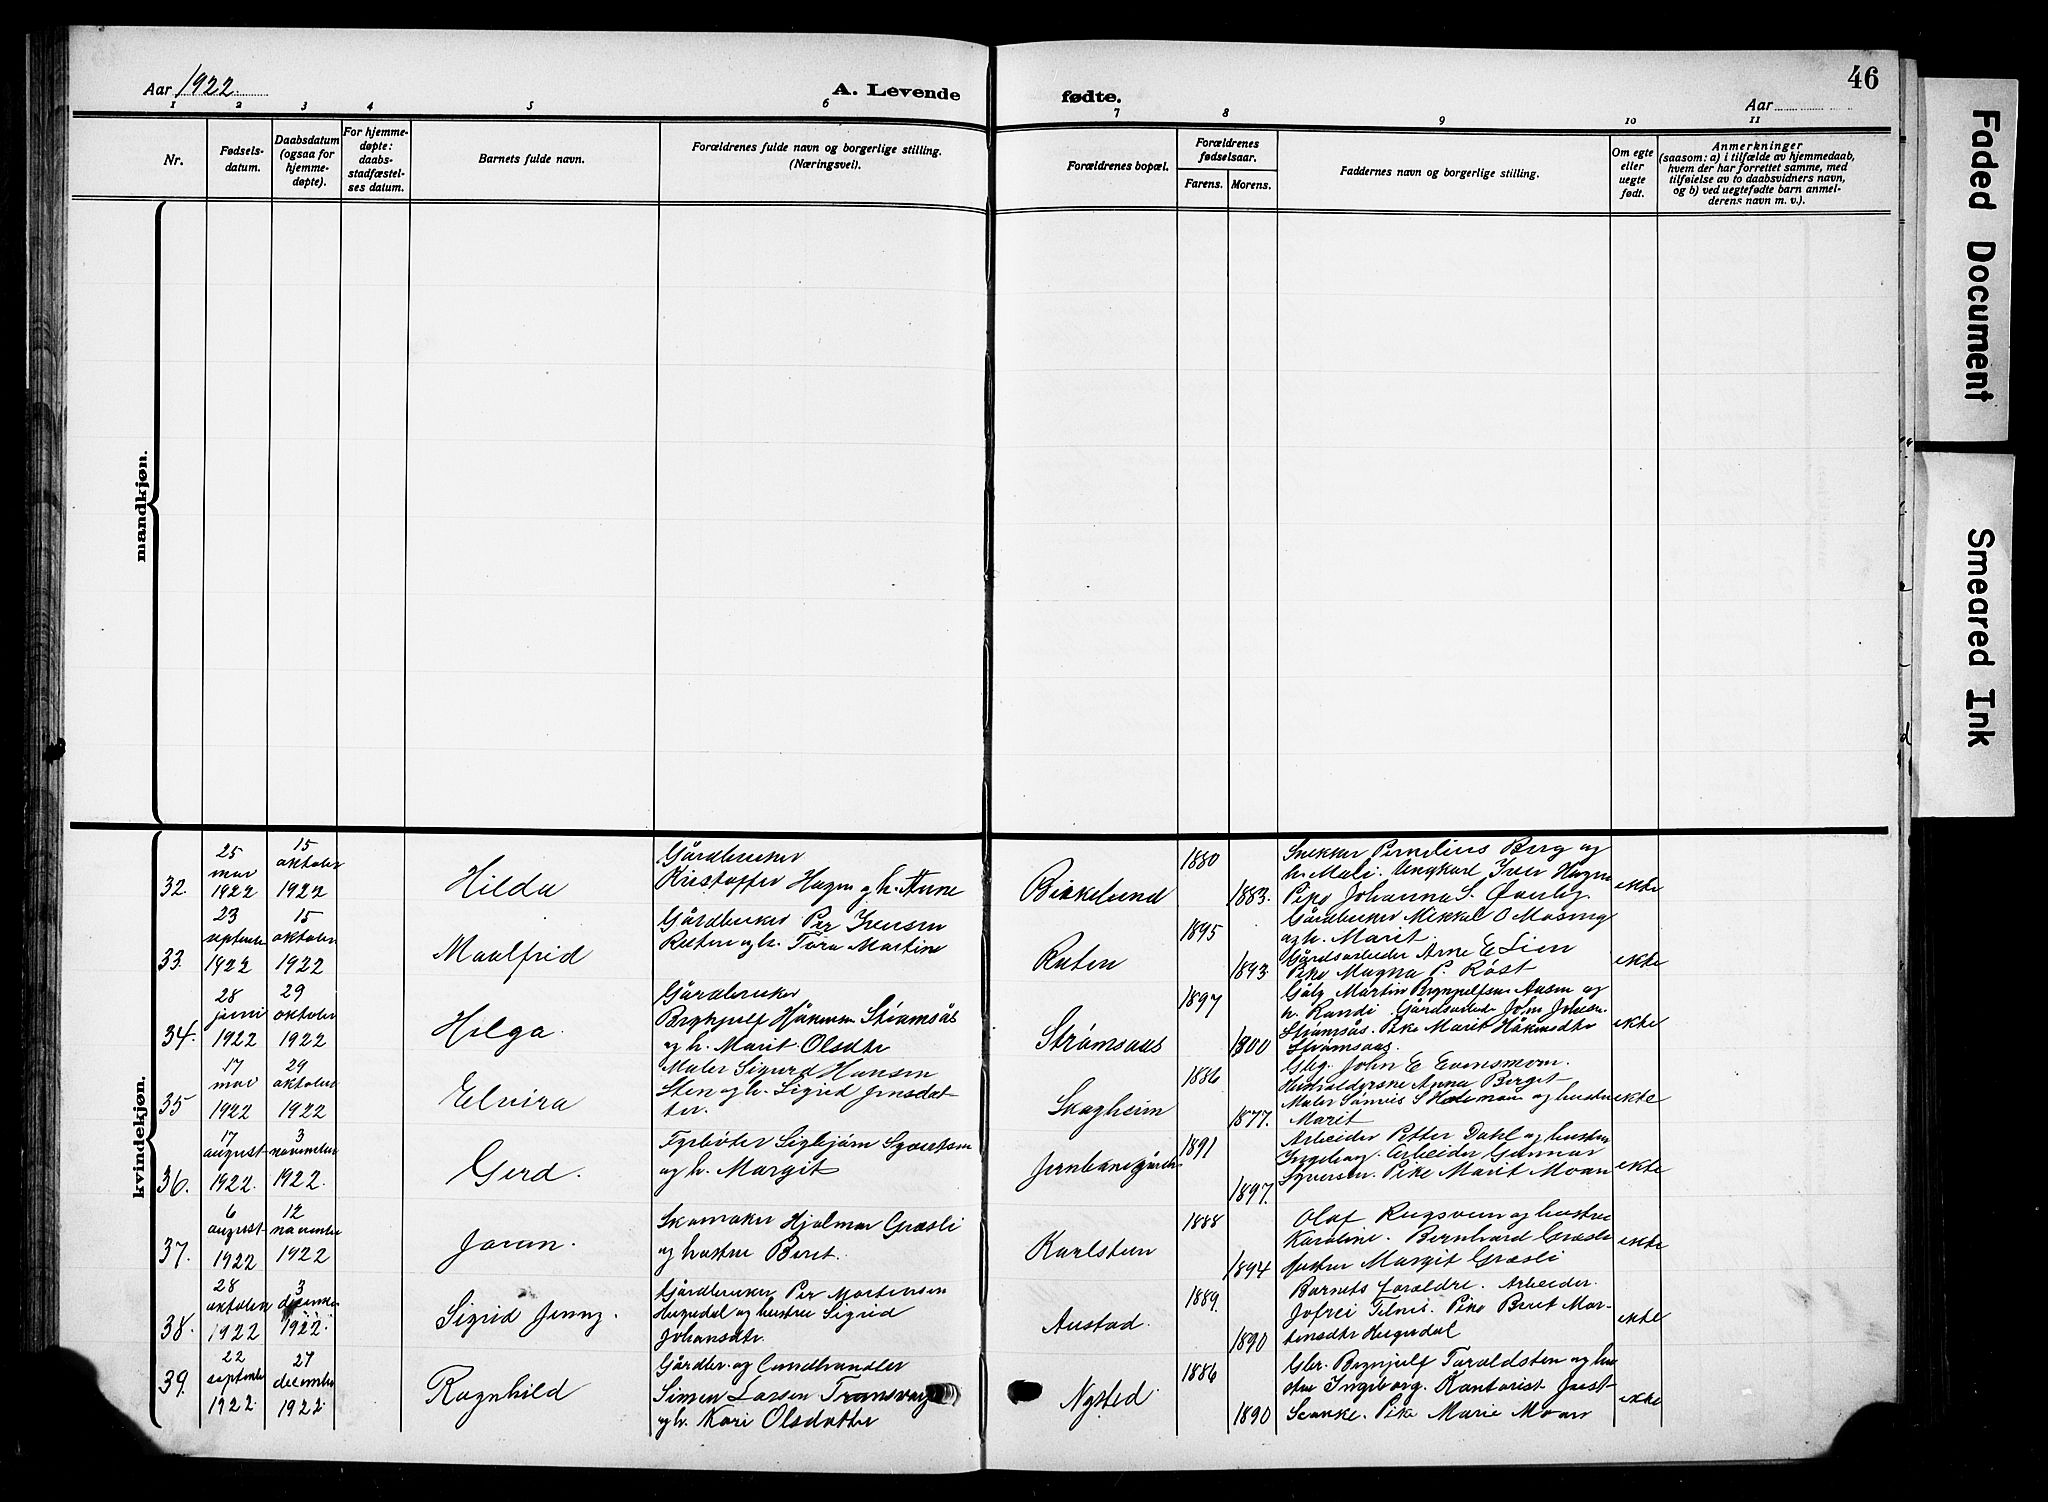 Aar 1922.
A. Levende
fødte.
Aar
46
1
2
3
4
5
6
7
8
9
10
11
Nr.
Fødsels-
datum.
Daabsdatum
(ogsaa for
hjemme-
døpte).
For hjemme-
døpte:
daabs-
stadfæstel-
ses datum.
Barnets fulde navn.
Forældrenes fulde navn og borgerlige stilling.
(Næringsvei).
Forældrenes bopæl.
Forældrenes
fødselsaar.
Farens.
Morens.
Faddernes navn og borgerlige stilling.
Om egte
eller
uegte
født.
Anmerkninger
(saasom: a) i tilfælde av hjemmedaab,
hvem der har forrettet samme, med
tilføielse av to daabsvidners navn,
og b) ved uegtefødte barn anmel-
derens navn m. v.).
mandkjøn.
kvindekjøn.
32.
25
mai
1922
15
oktober
1922
Hilda
Gårdbruker
Kristoffer Hagen og h. Anne
Birkelund
1880
1883.
Snekker Pernelius Berg og
h. Mali. Ungkarl Iver Hagen
Pike Johanna S. Øverby
ekte
33.
23
september
1922
15
oktober
1922
Maalfrid
Gårdbruker Per Iversen
Rosten og h. Tora Martine
Ruten
1895
1893
Gårdbruker Mikkel O Mosing
og h. Marit.
Gårdsarbeider Arne E Lien
Pike Magna P. Røst
ekte
34.
28
juni
1922
29
oktober
1922
Helga.
Gårdbruker
Brynjulf Håkensen Strømsås
og h. Marit Olsdtr
Strømsaas
1897
1900
Martin Brynjulfsen Aasen og
h. Randi. Gårdsarbeider John Johnsen
Strømsås. Pike Marit Håkensdtr
Strømsaas.
ekte
35
17
mai
1922
29
oktober
1922
Elvira
Maler Sigurd Hansen
Sten og h. Sigrid Jensdat-
ter.
Skogheim
1886
1877.
Gbg. John E Evensmoen.
Anna Berget
Maler S Hedeman og hustru
Marit
ekte
36.
17
august
1922.
3
november
1922.
Gerd.
Fyrbøter Sigbjørn Syvertsen
og h. Margit
Jernbanegården
1891
1897.
Arbeider Petter Dahl og hustru
Ingeborg. Arbeider Gunnar
Syversen. Pike Marit Moan
ekte
37.
6
august
1922
12
november
1922
Joran.
Skomaker Hjalmar Græsli
og hustru Beret.
Karlsteen
1888
1894
Olaf Rugsveen og hustru
Karoline. Bernhard Græsli
hustru Margit Græsli
ekte
38.
28
oktober
1922
3
desember
1922.
Sigrid Jenny.
Gårdbruker Per Mortensen
Hegsedal og hustru Sigrid
Johansdtr.
Austad.
1889.
1890
Barnets forældre. Arbeider.
Jofrei Telnes. Pike Beret Mor-
tensdtr Hegsedal
ekte
39.
22
september
1922.
27
december
1922.
Ragnhild
Gårdbr. og Landhandler
Simen Larsen Transvaag
og h. Kari Olsdatter
Nysted.
1886
1890
Gbr. Brynjulf Taraldsten og hu-
stru Ingeborg. Kontorist Just
Scanke. Pike Marie Moan
ekte
Faded Document
Smeared Ink